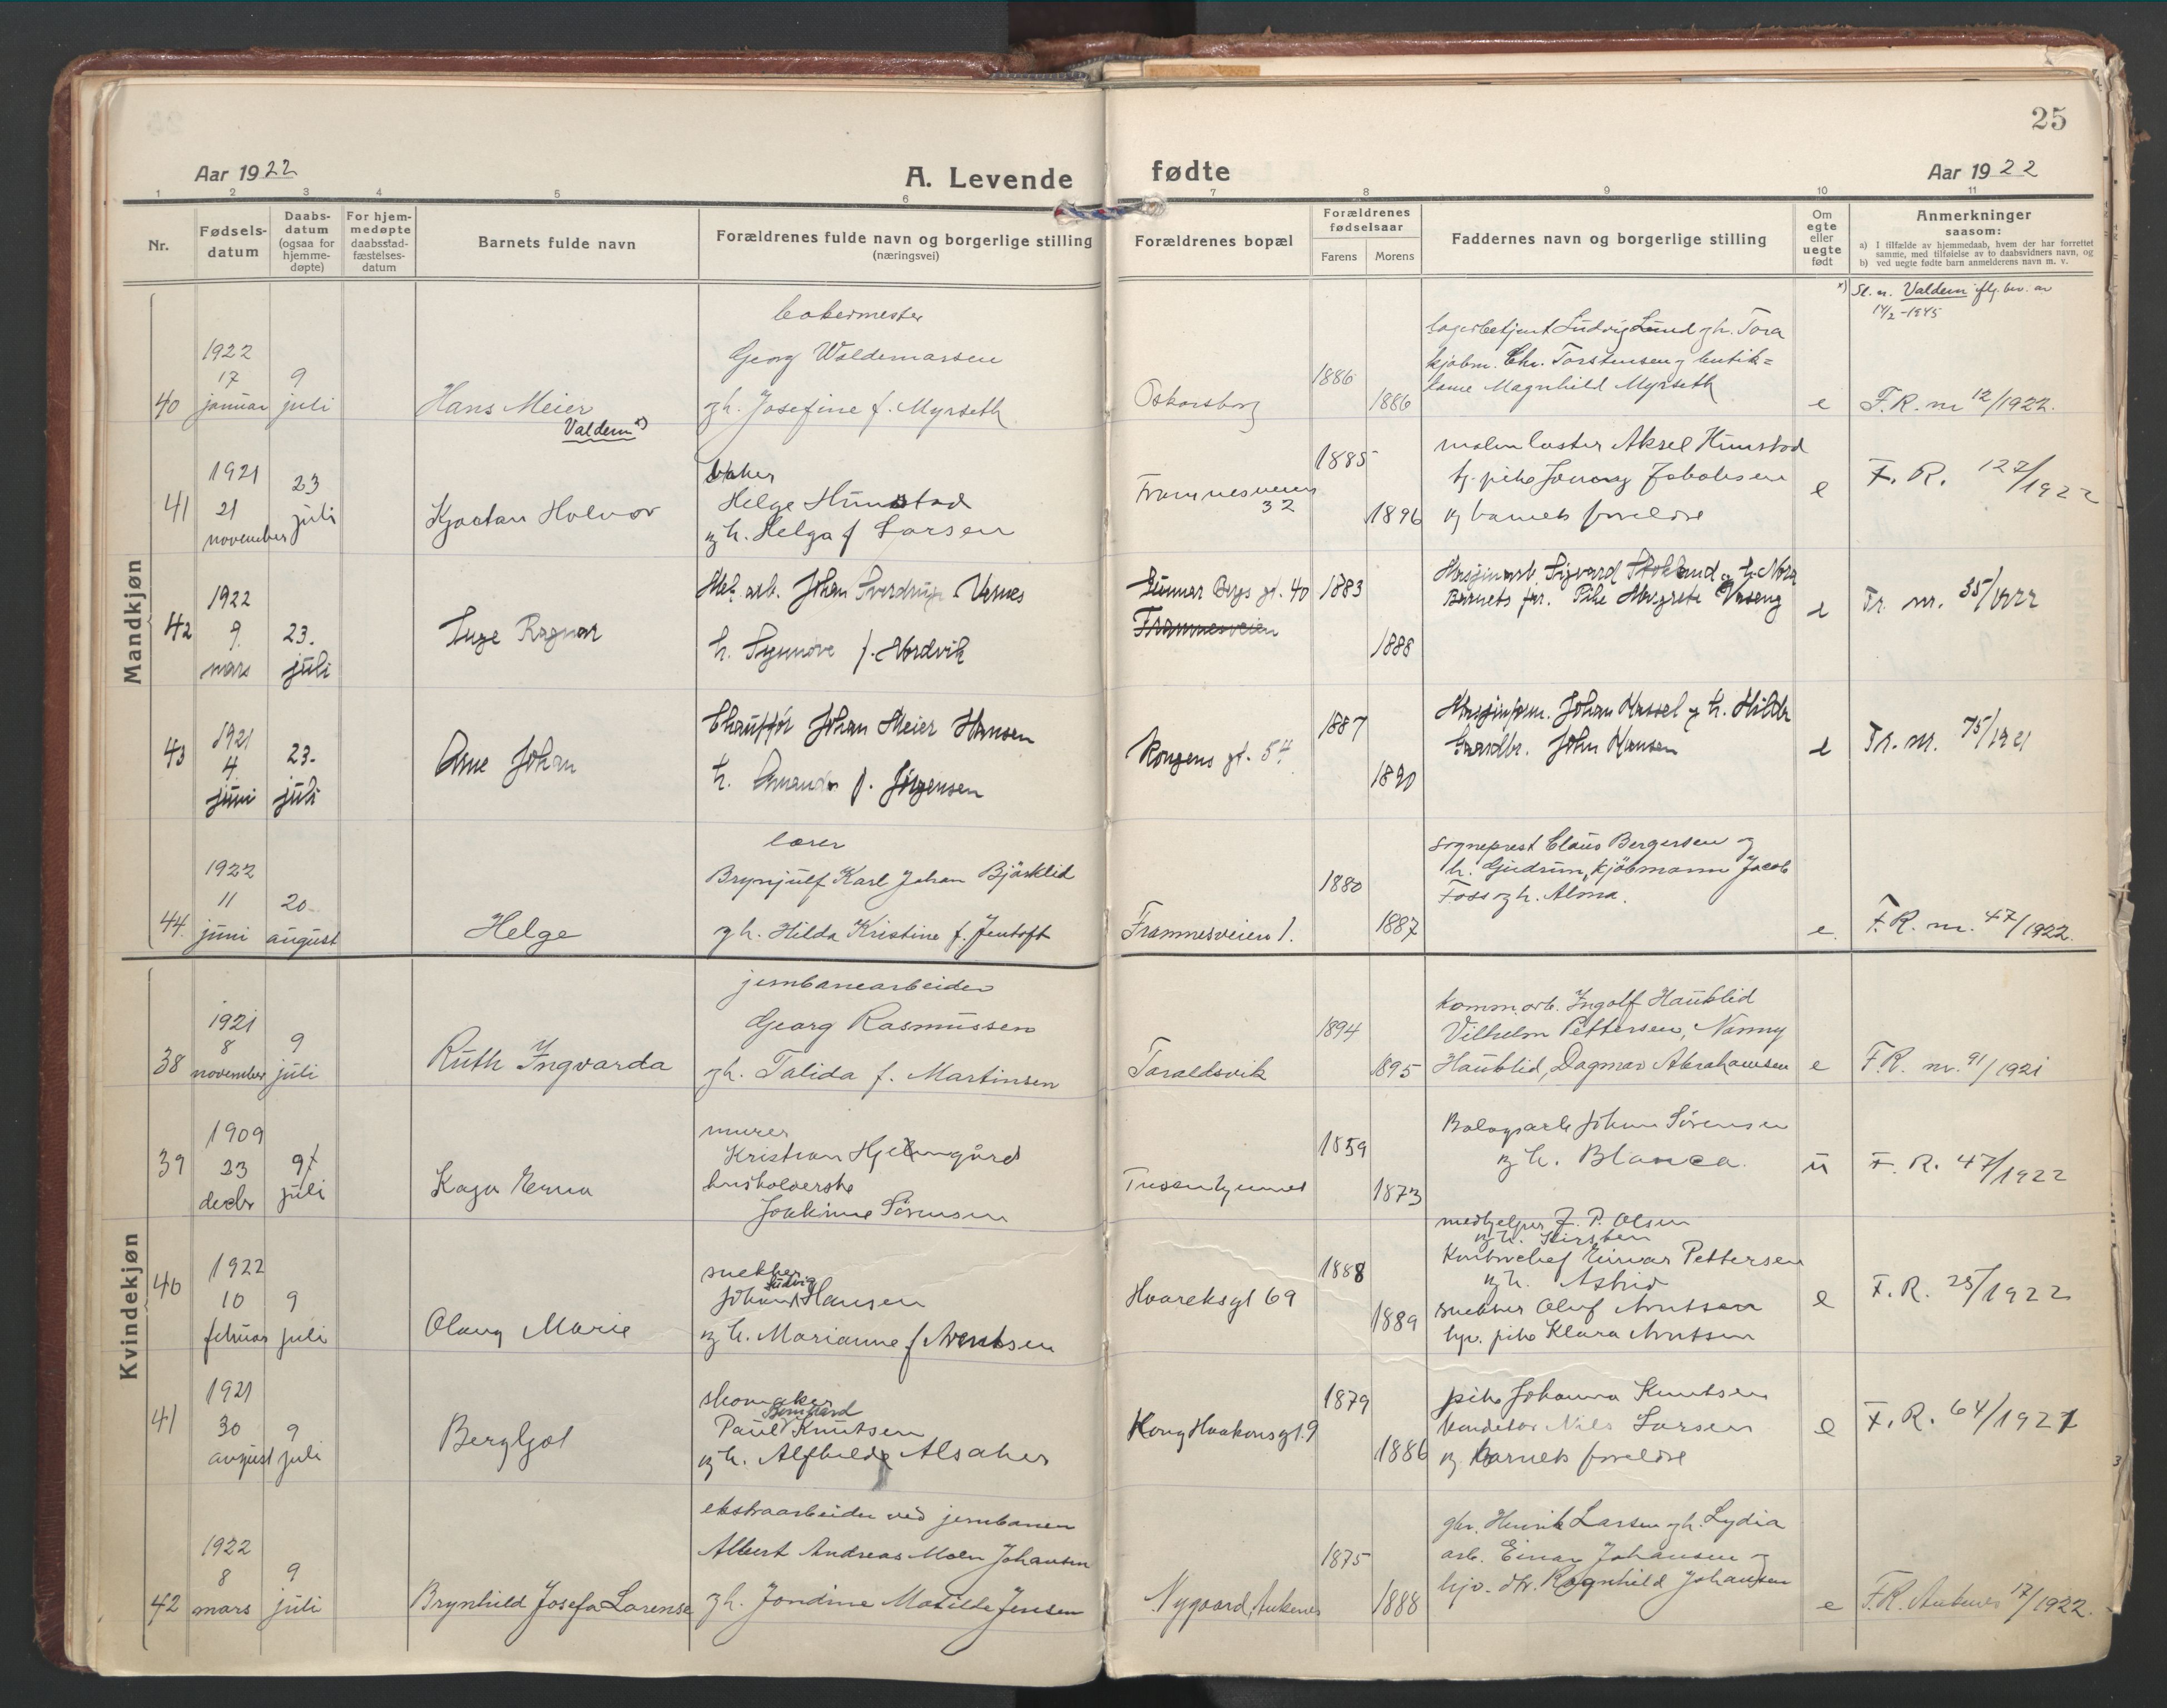 25
Aar 1922
A. Levende fødte
Aar 1922
1 2 3 4 5 6 7 8 9 10 11
Nr.
Fødsels-
datum
Daabs-
datum
(ogsaa for
hjemme-
døpte)
For hjem-
medøpte
daabsstad-
fæstelses-
datum
Barnets fulde navn
Forældrenes fulde navn og borgerlige stilling
(næringsvei)
Forældrenes bopæl
Forældrenes
fødselsaar
Farens Morens
Faddernes navn og borgerlige stilling
Om
egte
eller
uegte
født
Anmerkninger
saasom:
a) I tilfælde av hjemmedaab, hvem der har forrettet
samme, med tilføielse av to daabsvidners navn, og
b) ved uegte fødte barn anmelderens navn m. v.
Mandkjøn
x) Sl. n. Valdem iflg. bev. av
14/2-1945
40
1922
17
januar
9
juli
Hans Meier
Valdem x)
bakermester
Georg Waldemarsen
og h. Josefine f. Myrseth
Oskarsborg
1886
1886
lagerbetjent Ludvig Lund og h. Tora
kjøbm. Chr. Torstensen og butik=
dame Magnhild Myrseth
e
F.R. nr 12/1922.
41
1921
21
november
23
juli
Kjartan Halvor
baker
Helge Himstad
og h. Helga f Larsen
Framnesveien
32
1885
1896
malmlaster Aksel Himstad
pike Jenny Jakobsen
og barnets foreldre
e
F. R. 127/1922
42
1922
9.
mars
23.
juli
Inge Ragnar
Mek. arb. Johan Sverdrup Vernes
h. Synnøve f. Nordvik
Gunnar Bergs gt. 40
Framnesveien
1883
1888
Maskinarb. Sigvard Stokland og h. Nora
Barnets far. Pike Margrete Vaseng
e
Fr. nr. 35/1922
43
1921
4.
juni
23.
juli
Arne Johan
Chauffør Johan Meier Hansen
h. Amanda f. Jørgensen
Kongens gt. 54
1887
1890
Johan Kassel og h. Hilda
Gaardbr. John Hansen
e
Fr. nr. 75/1921
44.
1922
11
juni
20
august
Helge
lærer
Brynjulf Karl Johan Bjørklid
og h. Hilda Kristine f. Jentoft
Framnesveien 1.
1880
1887
sogneprest Claus Bergersen og
h. Gudrun, kjøbmann Jacob
Foss og h. Alma.
e.
F.R. nr. 47/1922.
Kvindekjøn
38
1921
8
november
9
juli
Ruth Ingvarda
jernbanearbeider
Georg Rasmussen
og h. Talida f. Martinsen
Taraldsvik
1894
1895
komm.arb. Ingolf Haublid
Vilhelm Pettersen, Nanny
Haublid, Dagmar Abrahamsen
e
F.R. nr. 91/1921
39
1909
23
decbr
9
juli
Kaja Erna
murer
Kristian Hjelmgård
husholderske
Joakime Sørensen
Tusenhjemmet
1859
1873
Bolagsarb Johan Sørensen
og h. Blanca.
u
F. R. 47/1922
40
1922
10
februar
9
juli
Olaug Marie
snekker
Ludvig
Johan Hansen
og h. Marianne f Arntsen
Havreksgt 69
1888
1889
medhjelper F. P. Olsen
og h. Kirsten
Kontorchef Einar Pettersen
og h. Astrid
snekker Oluf Arntsen
hjv. pike Klara Arntsen
e
F. R. 25/1922
41
1921
30
august
9
juli
Bergljot
skomaker
Bernhard
Paul Knutsen
og h. Alfhilde Alsaker
Kong Haakonsgt. 9
1879
1886
pike Johanna Knutsen
Konduktør Nils Larsen
og barnets foreldre
e
F. R. 64/1921
42
1922
8
mars
9
juli
Brynhild Josefa Lorense
ekstraarbeider ved jernbanen
Albert Andreas Moen Johansen
og h. Jondine Matilde Jensen
Nygaard, Ankenes
1875
1888
gbr. Henrik Larsen og h. Lydia
arb. Einar Johansen og
hjv. dtr. Ragnhild Johansen
e
F.R. Ankenes 17/1922.